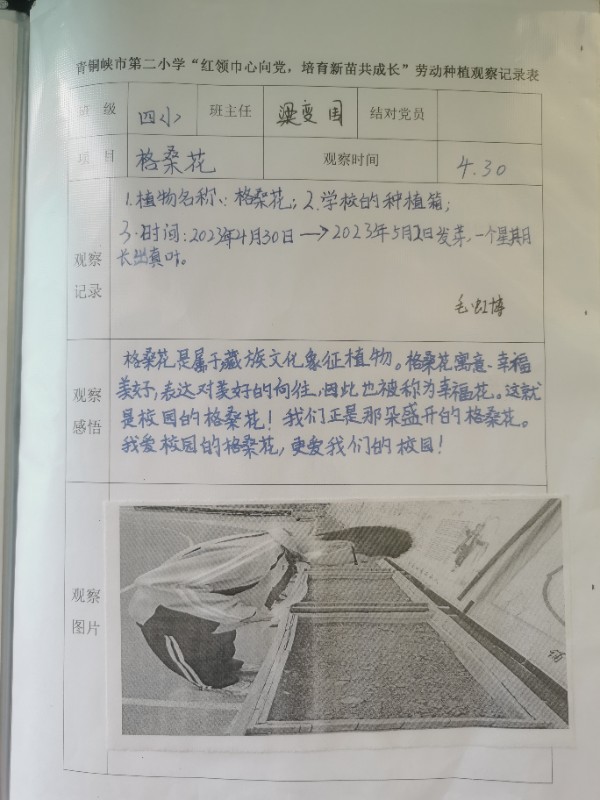 青铜峡市第二小学“红领巾心向党，培育新苗共成长”劳动种植观察记录表
班 级 四小 班主任 梁变国 结对党员
项 目 格桑花 观察时间 4.30
观察记录
1.植物名称：格桑花；2.学校的种植箱；
3.时间：2023年4月30日→2023年5月2日发芽，一个星期月
长出真叶。
毛虹博
观察感悟
格桑花是属于藏族文化象征植物。格桑花寓意幸福
美好，表达对美好的向往，因此也被称为幸福花。这就
是校园的格桑花！我们正是那朵盛开的格桑花。
我爱校园的格桑花，更爱我们的校园！
观察图片